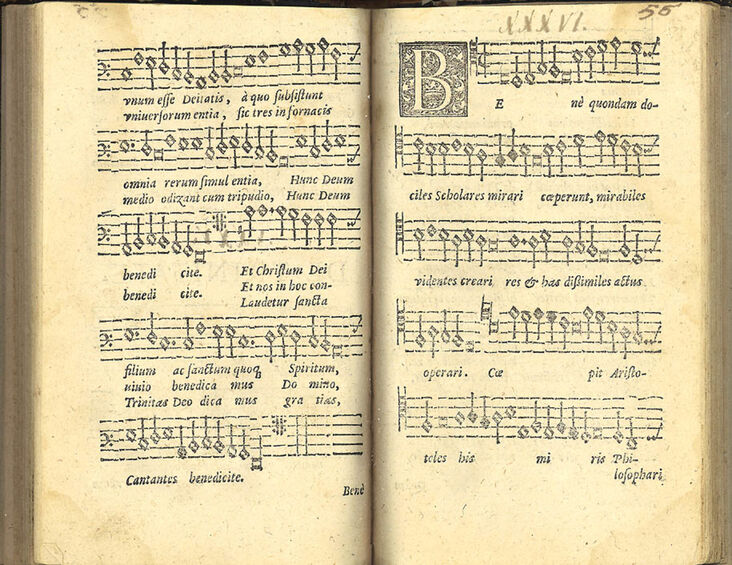 vnum esse Deitatis, à quo subsistunt
vniuersorum entia, sic tres in fornacis
omnia rerum simul entia, Hunc Deum
medio odizant cum tripudio, Hunc Deum
benedi cite. Et Christum Dei
benedi cite. Et nos in hoc con-
Laudetur sancta
filium ac sanctum quoq; Spiritum,
uiuio benedica mus Do mino,
Trinitas Deo dica mus gra tias,
Cantantes benedicite.
Benè
XXXVI.
55
B
E nè quondam do-
ciles Scholares mirari cœperunt, mirabiles
videntes creari res & has dißimiles actus
operari. Cœ pit Aristo-
teles his mi ris Phi-
losophari